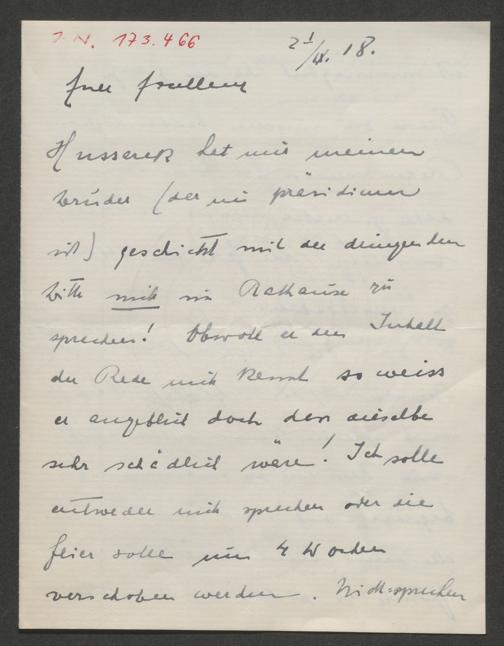 I. N. 173.466
21/IX. 18.
Euer Exzellenz
Hussarek hat mir meinen
Bruder (der im Präsidium
ist) geschickt mit der dringenden
Bitte nicht im Rathause zu
sprechen! Obwohl er den Inhalt
der Rede nicht kennt so weiss
er angeblich doch dass dieselbe
sehr schädlich wäre! Ich solle
entweder nicht sprechen oder die
Feier solle um 4 Wochen
verschoben werden. Nicht-sprechen